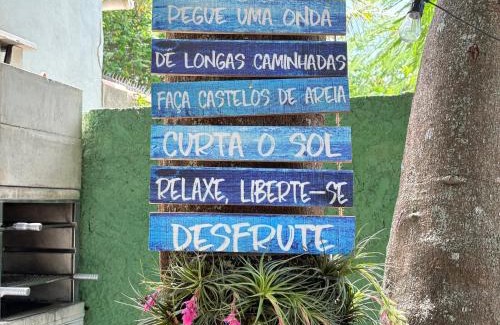 PEGUE UMA ONDA
DE LONGAS CAMINHADAS
FAÇA CASTELOS DE AREIA
CURTA O SOL
RELAXE, LIBERTE-SE
DESFRUTE